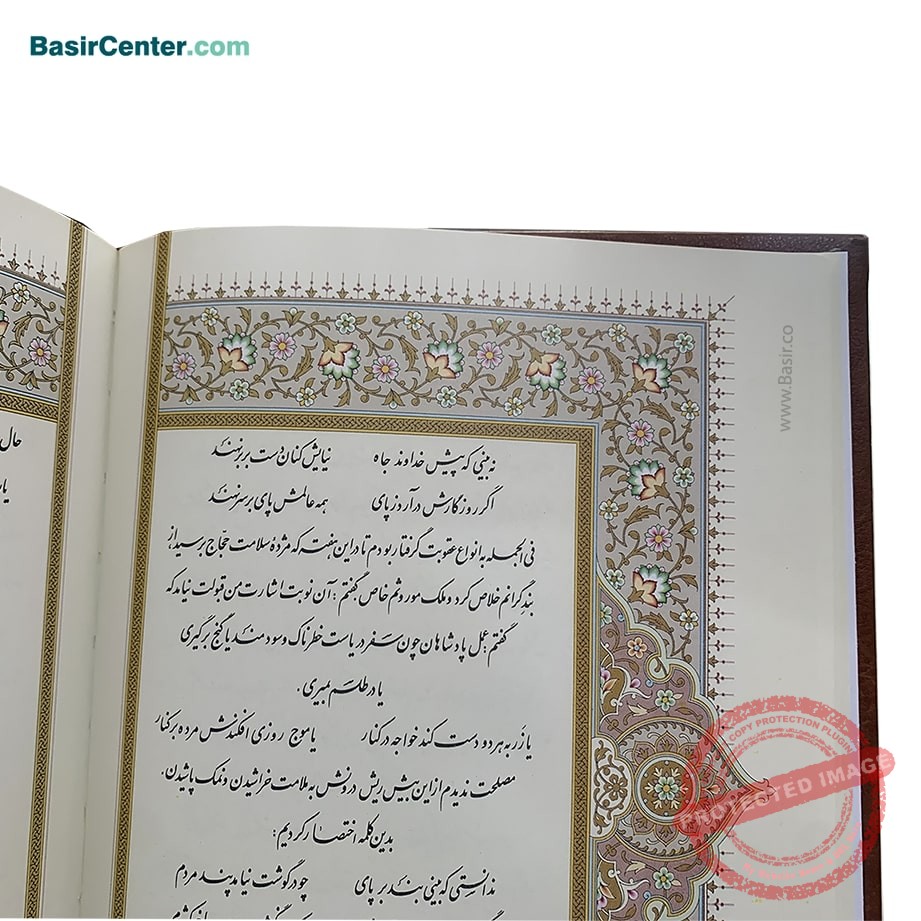 BasirCenter.com
www.Basir.co
نه بینی که پیش خداوند جاه نیایش کنان دست بر بر نهند
اگر روزگارش درآرد ز پای همه عالمش پای بر سر نهند
فی الجمله به انواع عقوبت گرفتار بودم تا در این هفته که مژدهٔ سلامت حجّاج برسید، از
بند گرانم خلاص کرد و ملک موروثم خاص گفتم: آن نوبت اشارت من قبولت نیامد که
گفتم: عمل پادشاهان چون سفر دریاست خطرناک و سودمند یا گنج برگیری
یا در طلسم بمیری.
یا زر به هر دو دست کند خواجه در کنار یا موج روزی افکندش مرده بر کنار
مصلحت ندیدم از این بیش ریش درونش به ملامت خراشیدن و نمک پاشیدن.
بدین کلمه اختصار کردیم:
ندانستی که بینی بند بر پای چو در گوشت نیامد پند مردم
حال
COPY PROTECTION PLUGIN
PROTECTED IMAGE